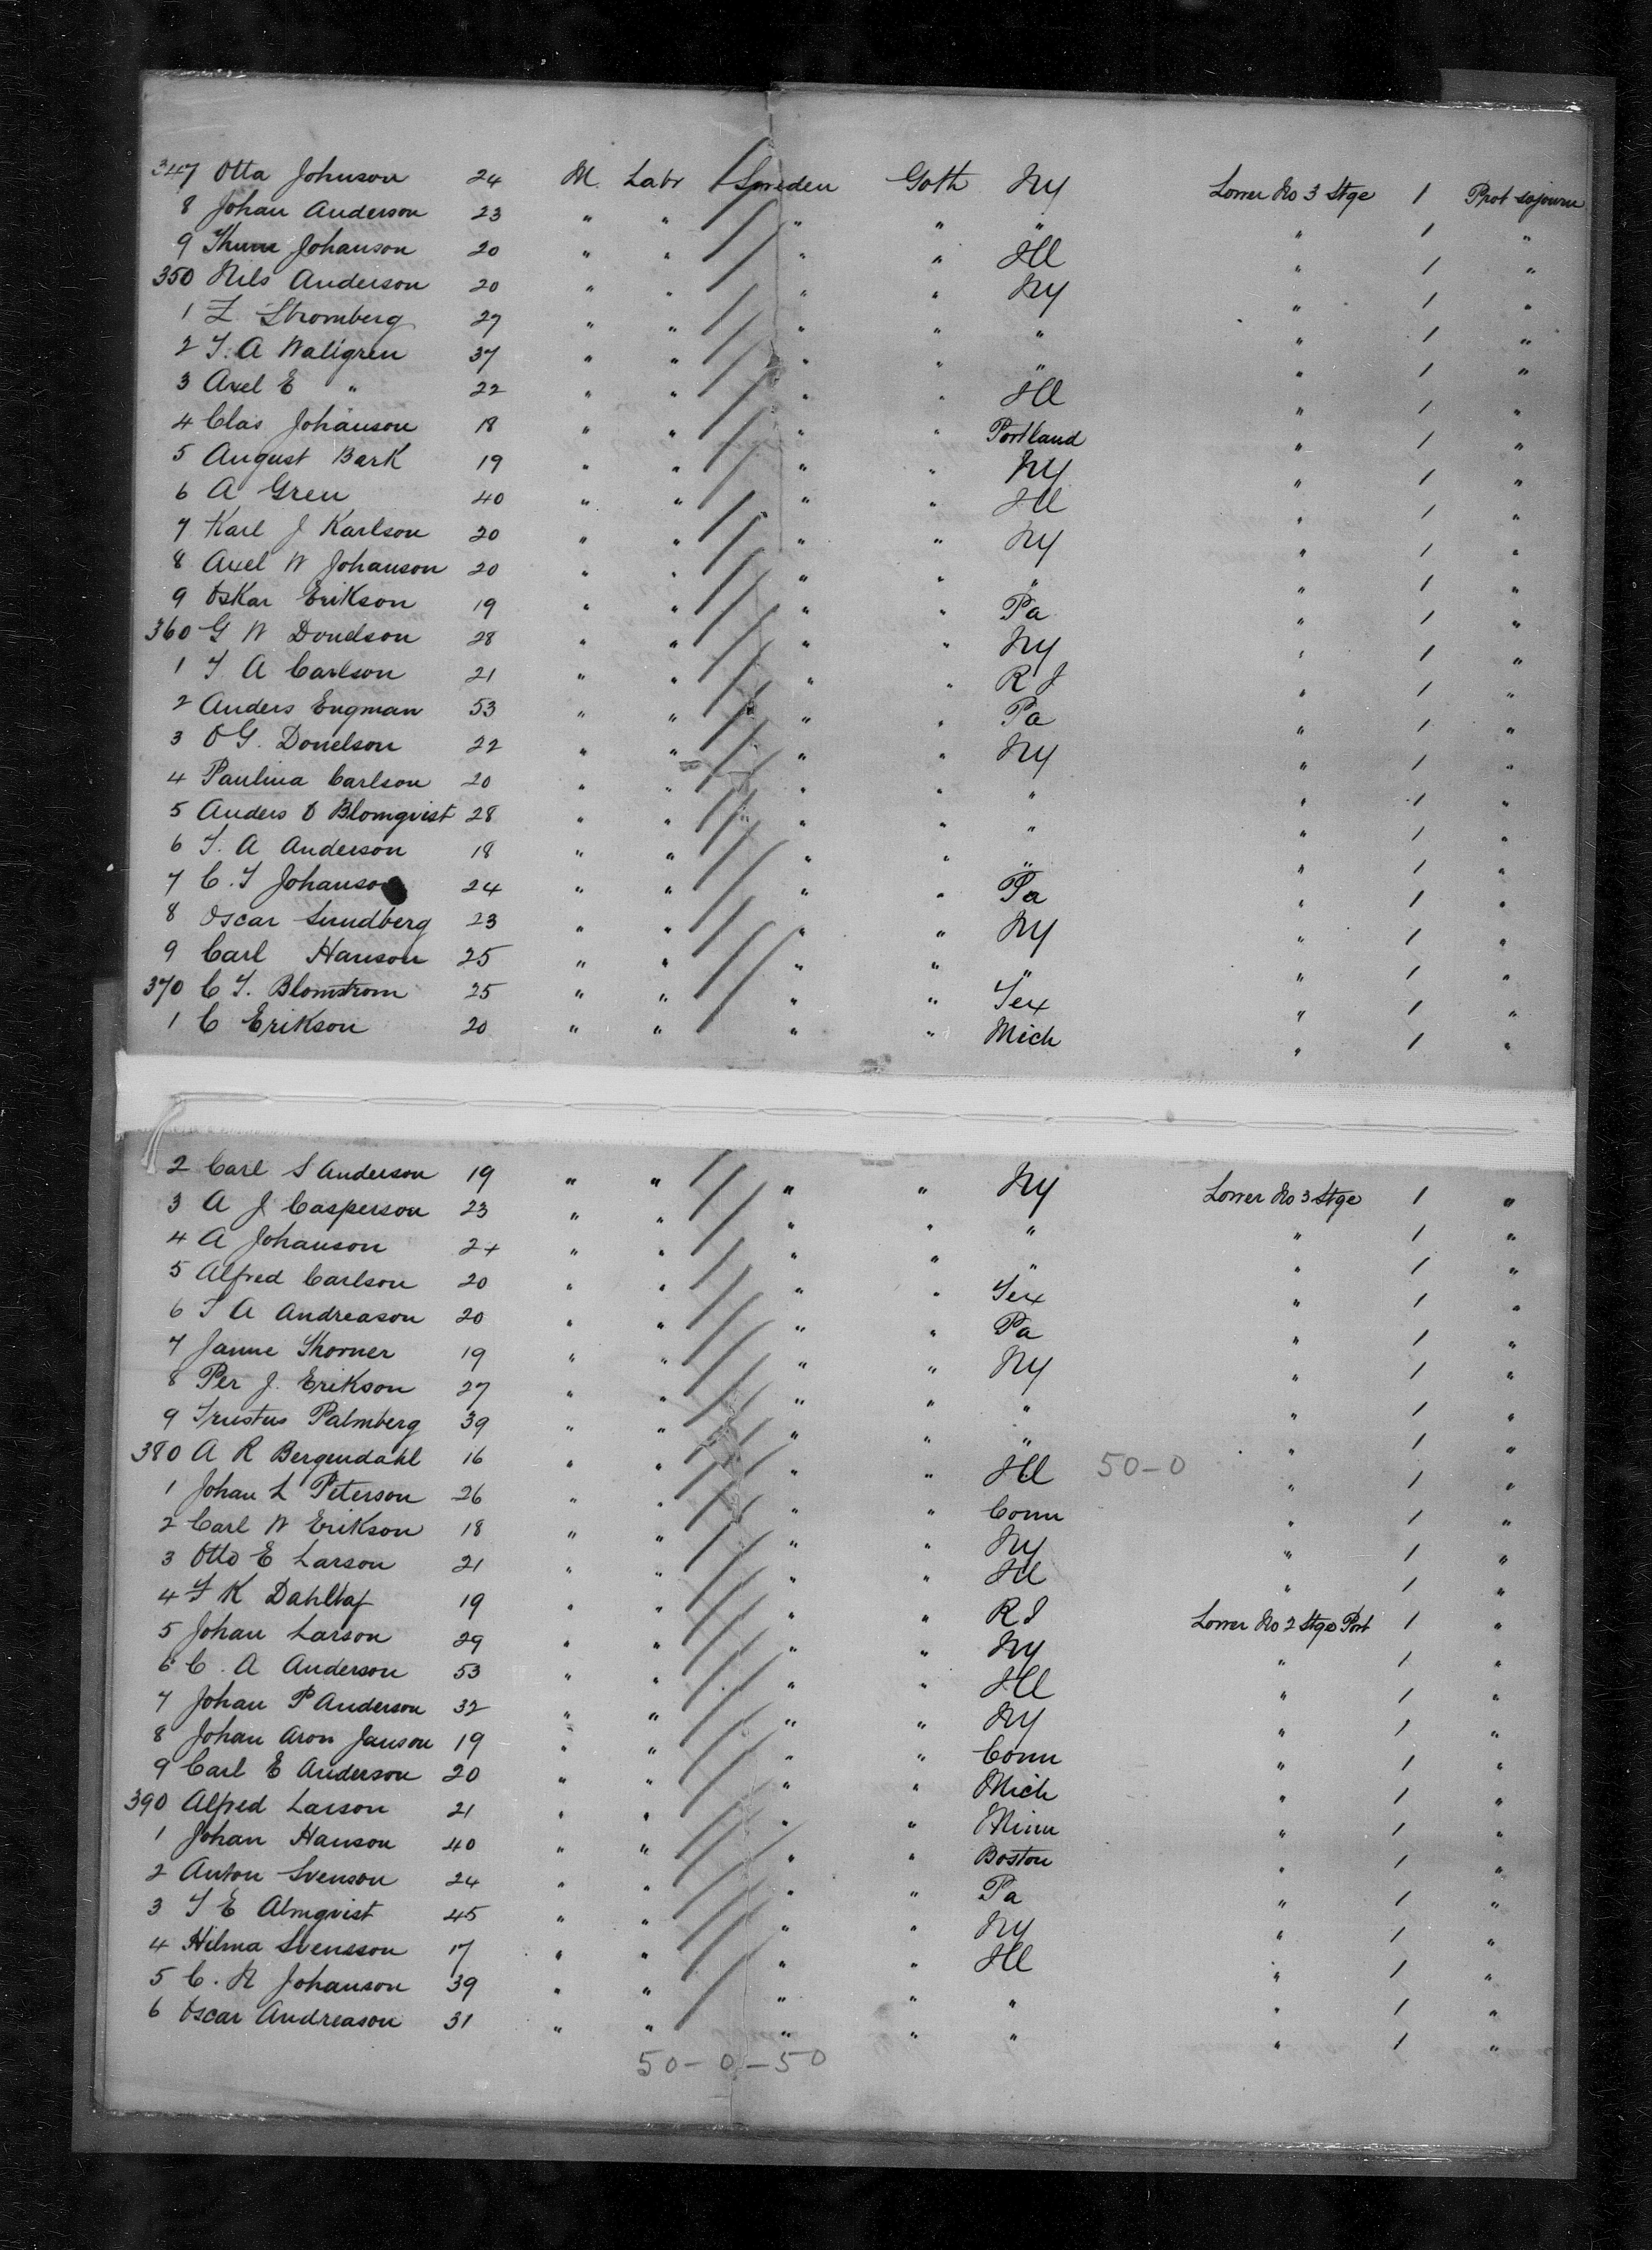 347 Otta Johnson 24 M. Labr Sweden Goth NY Lower No 3 Stge 1 Prot sojourn
8 Johan Anderson 23 " " " " " " 1 "
9 Johanson 20 " " " " Ill " 1 "
350 Nils Anderson 20 " " " " NY " 1 "
1 Stromberg 27 " " " " " " 1 "
2 A Wallgren 37 " " " " " " 1 "
3 Axel E " 22 " " " " Ill " 1 "
4 Clas Johanson 18 " " " " Portland " 1 "
5 August Bark 19 " " " " NY " 1 "
6 A Gren 40 " " " " Ill " 1 "
7 Karl J Karlson 20 " " " " NY " 1 "
8 Axel W Johanson 20 " " " " " " 1 "
9 Oskar Erikson 19 " " " " Pa " 1 "
360 G W Donelson 28 " " " " NY " 1 "
1 A Carlson 21 " " " " R I " 1 "
2 Anders Engman 53 " " " " Pa " 1 "
3 O G. Donelson 22 " " " " NY " 1 "
4 Paulina Carlson 20 " " " " " " 1 "
5 Anders O Blomqvist 28 " " " " " " 1 "
6 A Anderson 18 " " " " " " 1 "
7 C. Johanson 24 " " " " Pa " 1 "
8 Oscar Sundberg 23 " " " " NY " 1 "
9 Carl Hanson 25 " " " " " " 1 "
370 C Blomstrom 25 " " " " Tex " 1 "
1 C Erikson 20 " " " " Mich " 1 "
2 Carl S Anderson 19 " " " " NY Lower No 3 Stge 1 "
3 A J Casperson 23 " " " " " " 1 "
4 A Johanson " " " " " " 1 "
5 Alfred Carlson 20 " " " " Tex " 1 "
6 A Andreason 20 " " " " Pa " 1 "
7 Janne Thorner 19 " " " " NY " 1 "
8 Per J. Erikson 27 " " " " " " 1 "
9 Palmberg 39 " " " " " " 1 "
380 A R Bergendahl 16 " " " " Ill 50-0 " 1 "
1 Johan L Peterson 26 " " " " Conn " 1 "
2 Carl W Erikson 18 " " " " NY " 1 "
3 Otto E Larson 21 " " " " Ill " 1 "
4 K 19 " " " " R I Lower No 2 Stge Port 1 "
5 Johan Larson 29 " " " " NY " 1 "
6 C. A Anderson 53 " " " " Ill " 1 "
7 Johan P Anderson 32 " " " " NY " 1 "
8 Johan Aron Janson 19 " " " " Conn " 1 "
9 Carl E Anderson 20 " " " " Mich " 1 "
390 Alfred Larson 21 " " " " Minn " 1 "
1 Johan Hanson 40 " " " " Boston " 1 "
2 Anton Svenson 24 " " " " Pa " 1 "
3 E Almqvist 45 " " " " NY " 1 "
4 Hilma Svensson 17 " " " " Ill " 1 "
5 C. Johanson 39 " " " " " " 1 "
6 Oscar Andreason 31 " " " " " " 1 "
50-0-50